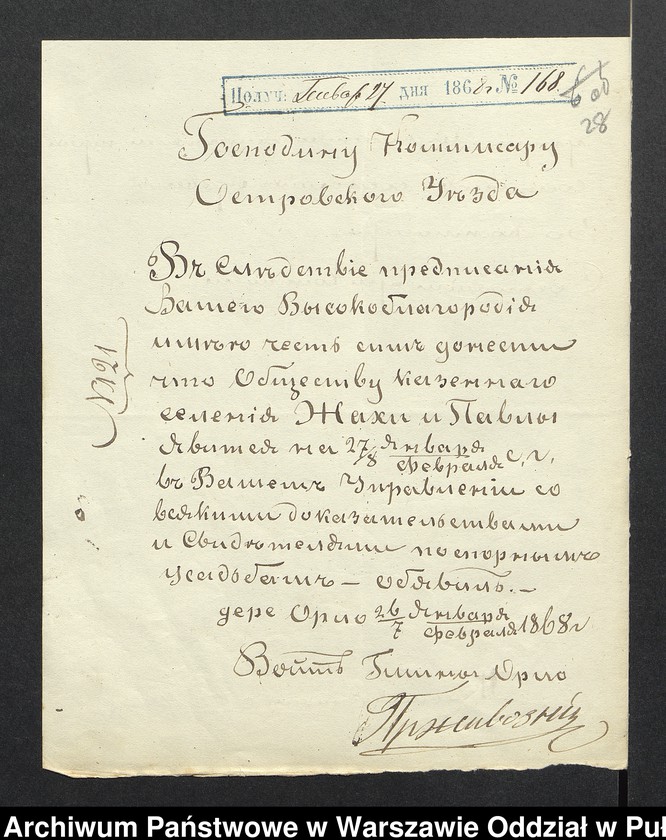 Получ: Январ 27 дня 1868 г № 168.
28
Господину Коммисару
Островскаго Уѣзда
№ 121
Въ Слѣдствіе предписанія
Вашего Высокоблагородія
имѣю честь симъ донести
что Обществу казеннаго
селенія Жахи и Павлы
явится на 27/8 Января/Февраля с. г.
въ Вашемъ Управленіи со
всякими доказательствами
и Свидѣтелями по спорнымъ
усадьбамъ — объявилъ. —
дере Орло 26/7 Января/Февраля 1868 г
Войтъ Гмины Орло
Archiwum Państwowe w Warszawie Oddział w Pu